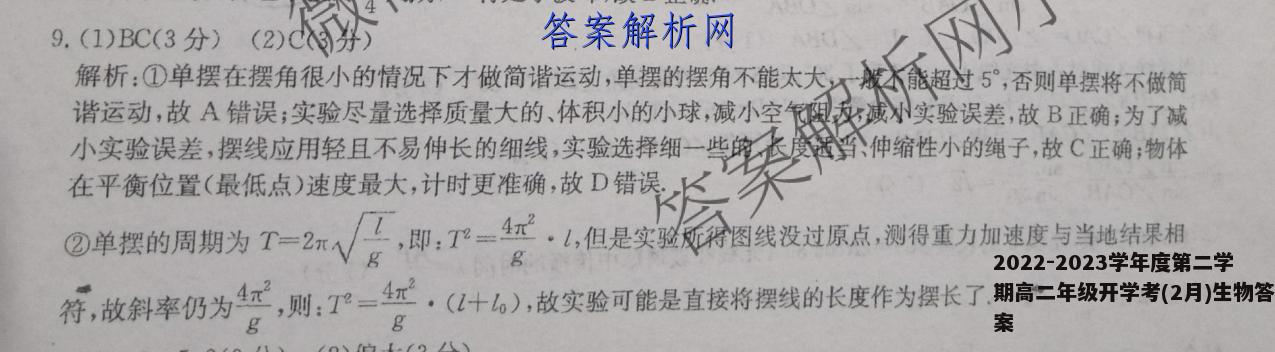 9.(1)BC(3分) (2)C(3分)
答案解析网
解析:①单摆在摆角很小的情况下才做简谐运动,单摆的摆角不能太大,一般不能超过5°,否则单摆将不做简
谐运动,故A错误;实验尽量选择质量大的、体积小的小球,减小空气阻力,减小实验误差,故B正确;为了减
小实验误差,摆线应用轻且不易伸长的细线,实验选择细一些的、长度适当、伸缩性小的绳子,故C正确;物体
在平衡位置(最低点)速度最大,计时更准确,故D错误.
答案解析网
②单摆的周期为T=2π√(l/g),即:T²=4π²/g·l,但是实验所得图线没过原点,测得重力加速度与当地结果相
符,故斜率仍为4π²/g,则:T²=4π²/g·(l+l₀),故实验可能是直接将摆线的长度作为摆长了.
2022-2023学年度第二学
期高二年级开学考(2月)生物答
案